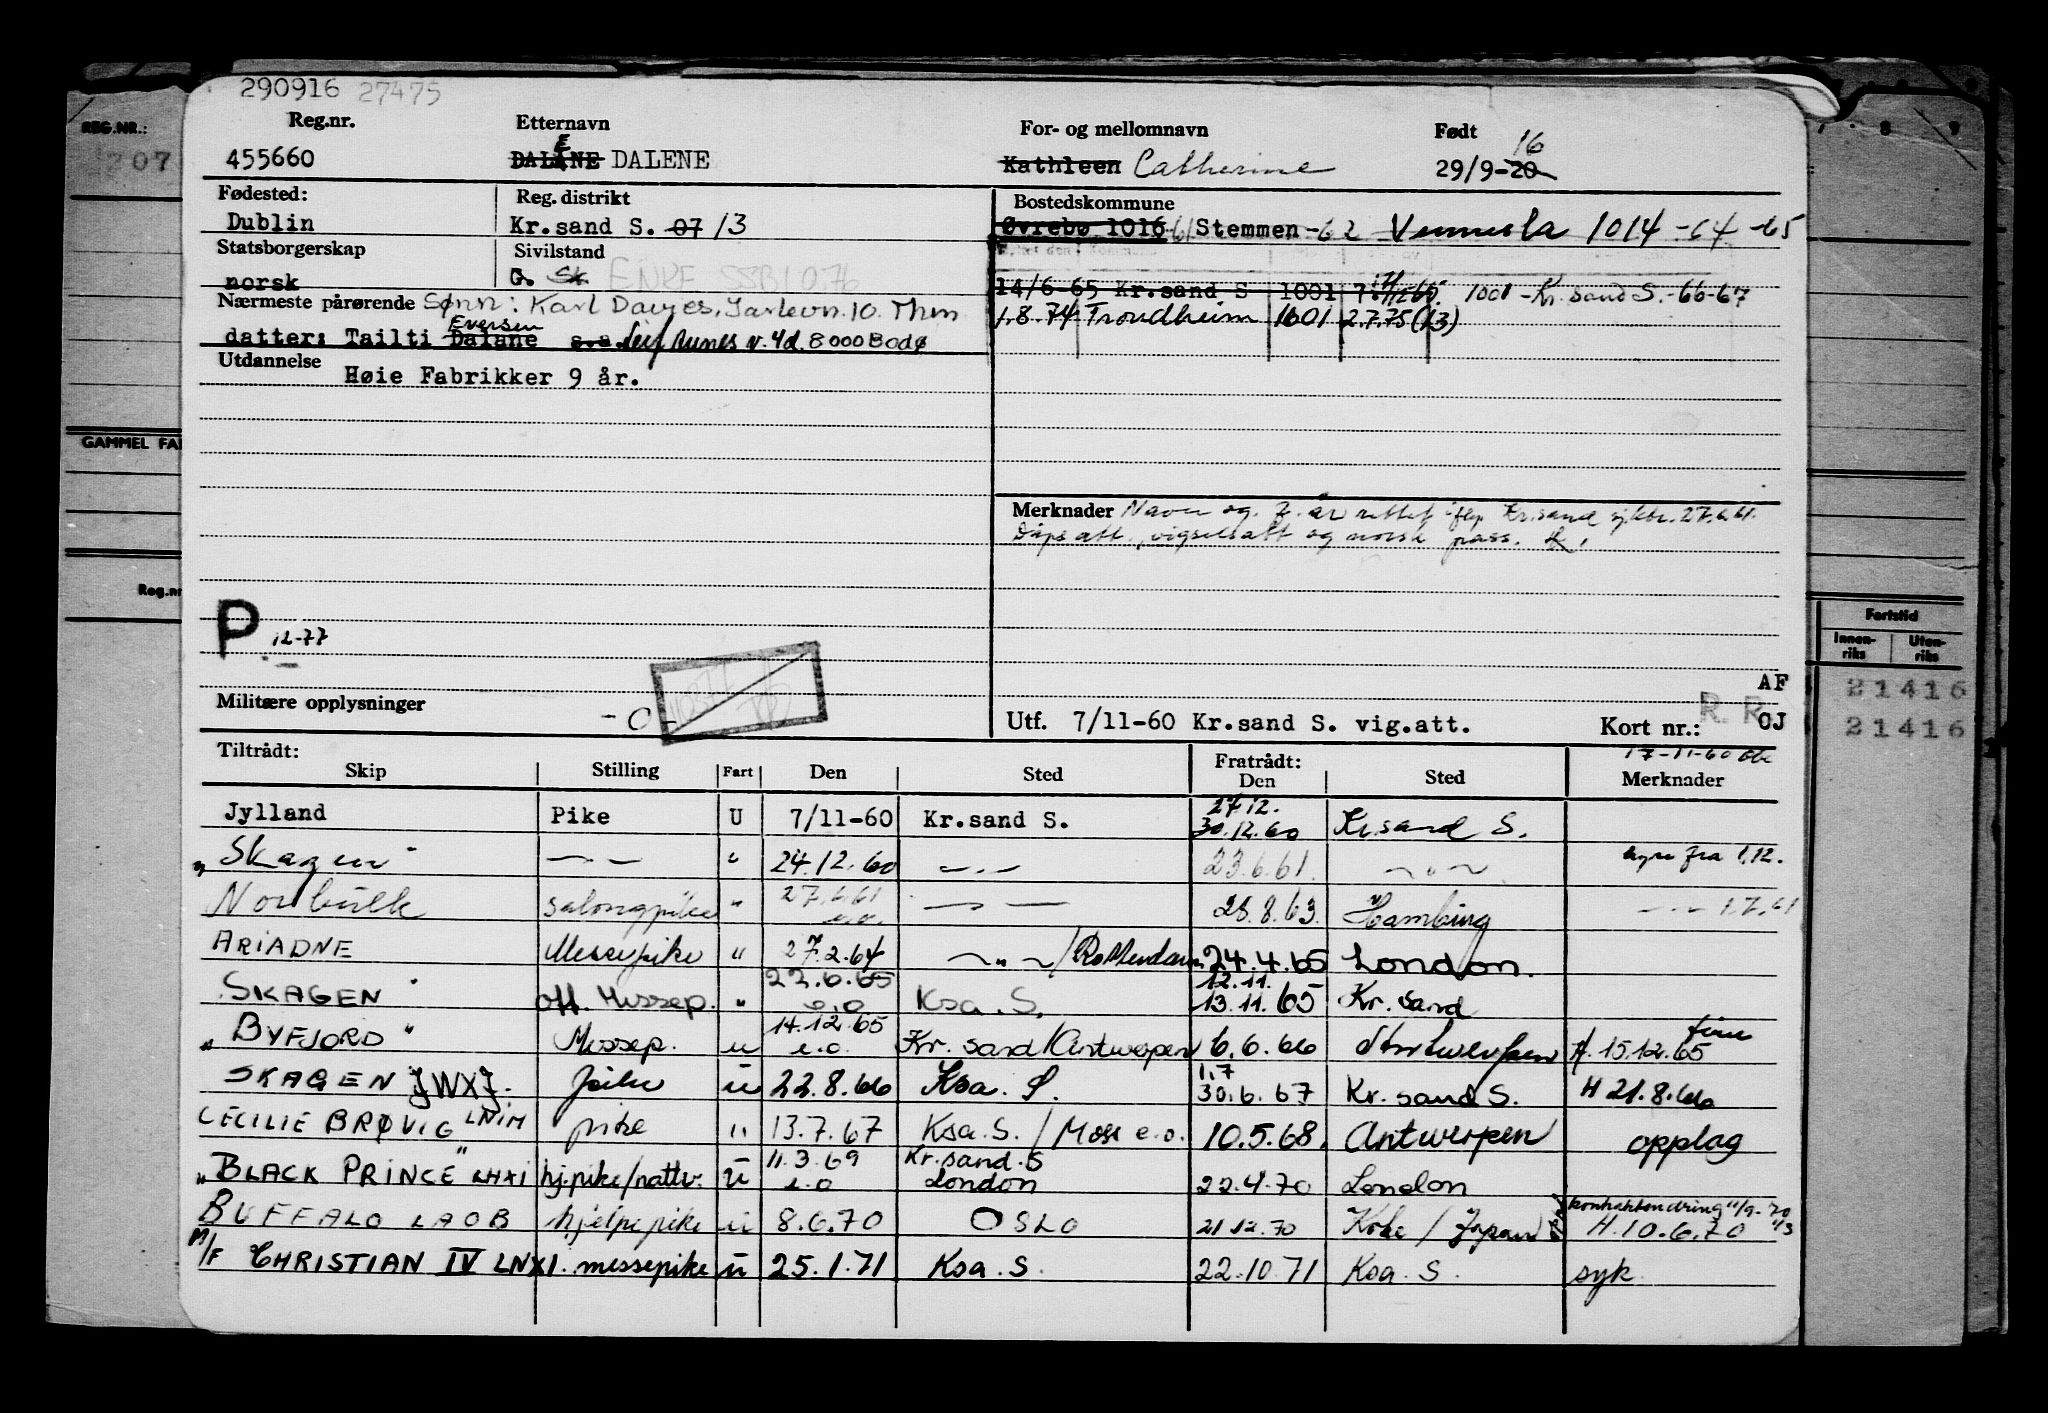 290916 27475
Reg.nr. Etternavn For- og mellomnavn Født
455660 DALENE DALENE Kathleen Catherine 29/9-20 16
Fødested: Reg. distrikt Bostedskommune
Dublin Kr.sand S. 07 13 Øvrebø 1016 -61 Stemmen -62 Vennesla 1014 -64 -65
Statsborgerskap Sivilstand
norsk G. Sk ENKE SSB1076 14/6-65 Kr.sand S 1001 1001 - Kr.sand S. -66-67
Nærmeste pårørende Sønn: Karl Davyes, Jarlevn. 10. Thm 1.8.74 Trondheim 1601 2.7.75 (13)
datter: Tailti Dalane Eversen s.a. Leif Aunes v. 4d. 8000 Bodø
Utdannelse Høie Fabrikker 9 år.
Merknader Navn og f. år rettet iflg Kr.sand sjktr. 27.6.61.
Dåps att., vigselsatt og norsk pass.
P 12-77
AF
Militære opplysninger -0- Utf. 7/11-60 Kr.sand S. vig.att. Kort nr.: R. R OJ
17-11-60
Tiltrådt: Fratrådt:
Skip Stilling Fart Den Sted Den Sted Merknader
Jylland Pike U 7/11-60 Kr.sand S. 27.12. 30.12.60 Kr.sand S.
"Skagen" — " — " 24.12.60 — " — 23.6.61. — " — hyre fra 1.12.
Norbulk salongpike " 27.6.61 e.o. — " — 28.8.63. Hamburg — " — 1.7.61
ARIADNE Messepike " 27.2.64 — " — / Rotterdam 24.4.65 London.
SKAGEN off. Messep. " 22.6.65 e.o Ksa. S. 12.11. 13.11.65 Kr. sand
"BYFJORD" Messep. u 14.12.65 e.o. Kr. sand/Antwerpen 6.6.66 Antwerpen H. 15.12.65
SKAGEN JWXJ. pike u 22.8.66 Ksa. S. 1.7 30.6.67 Kr. sand S. H 21.8.66
CECILIE BRØVIG LNIM pike " 13.7.67 Ksa. S. / Moss e.o. 10.5.68. Antwerpen opplag
"BLACK PRINCE" LHXI hj.pike/nattv. u 11.3.69 e.o Kr.sand. S London 22.4.70 London
BUFFALO LAOB hjelpepike u 8.6.70 OSLO 21.12.70 Kobe / Japan kontraktendring 11/9-70 H. 10.6.70 11/3
M/F CHRISTIAN IV LNXI. messepike u 25.1.71 Ksa. S. 22.10.71 Ksa. S. syk
REG.NR.:
207
GAMMEL FA
Reg.nr
7 8 9
Fartstid
Innen-riks Uten-riks
21416
21416